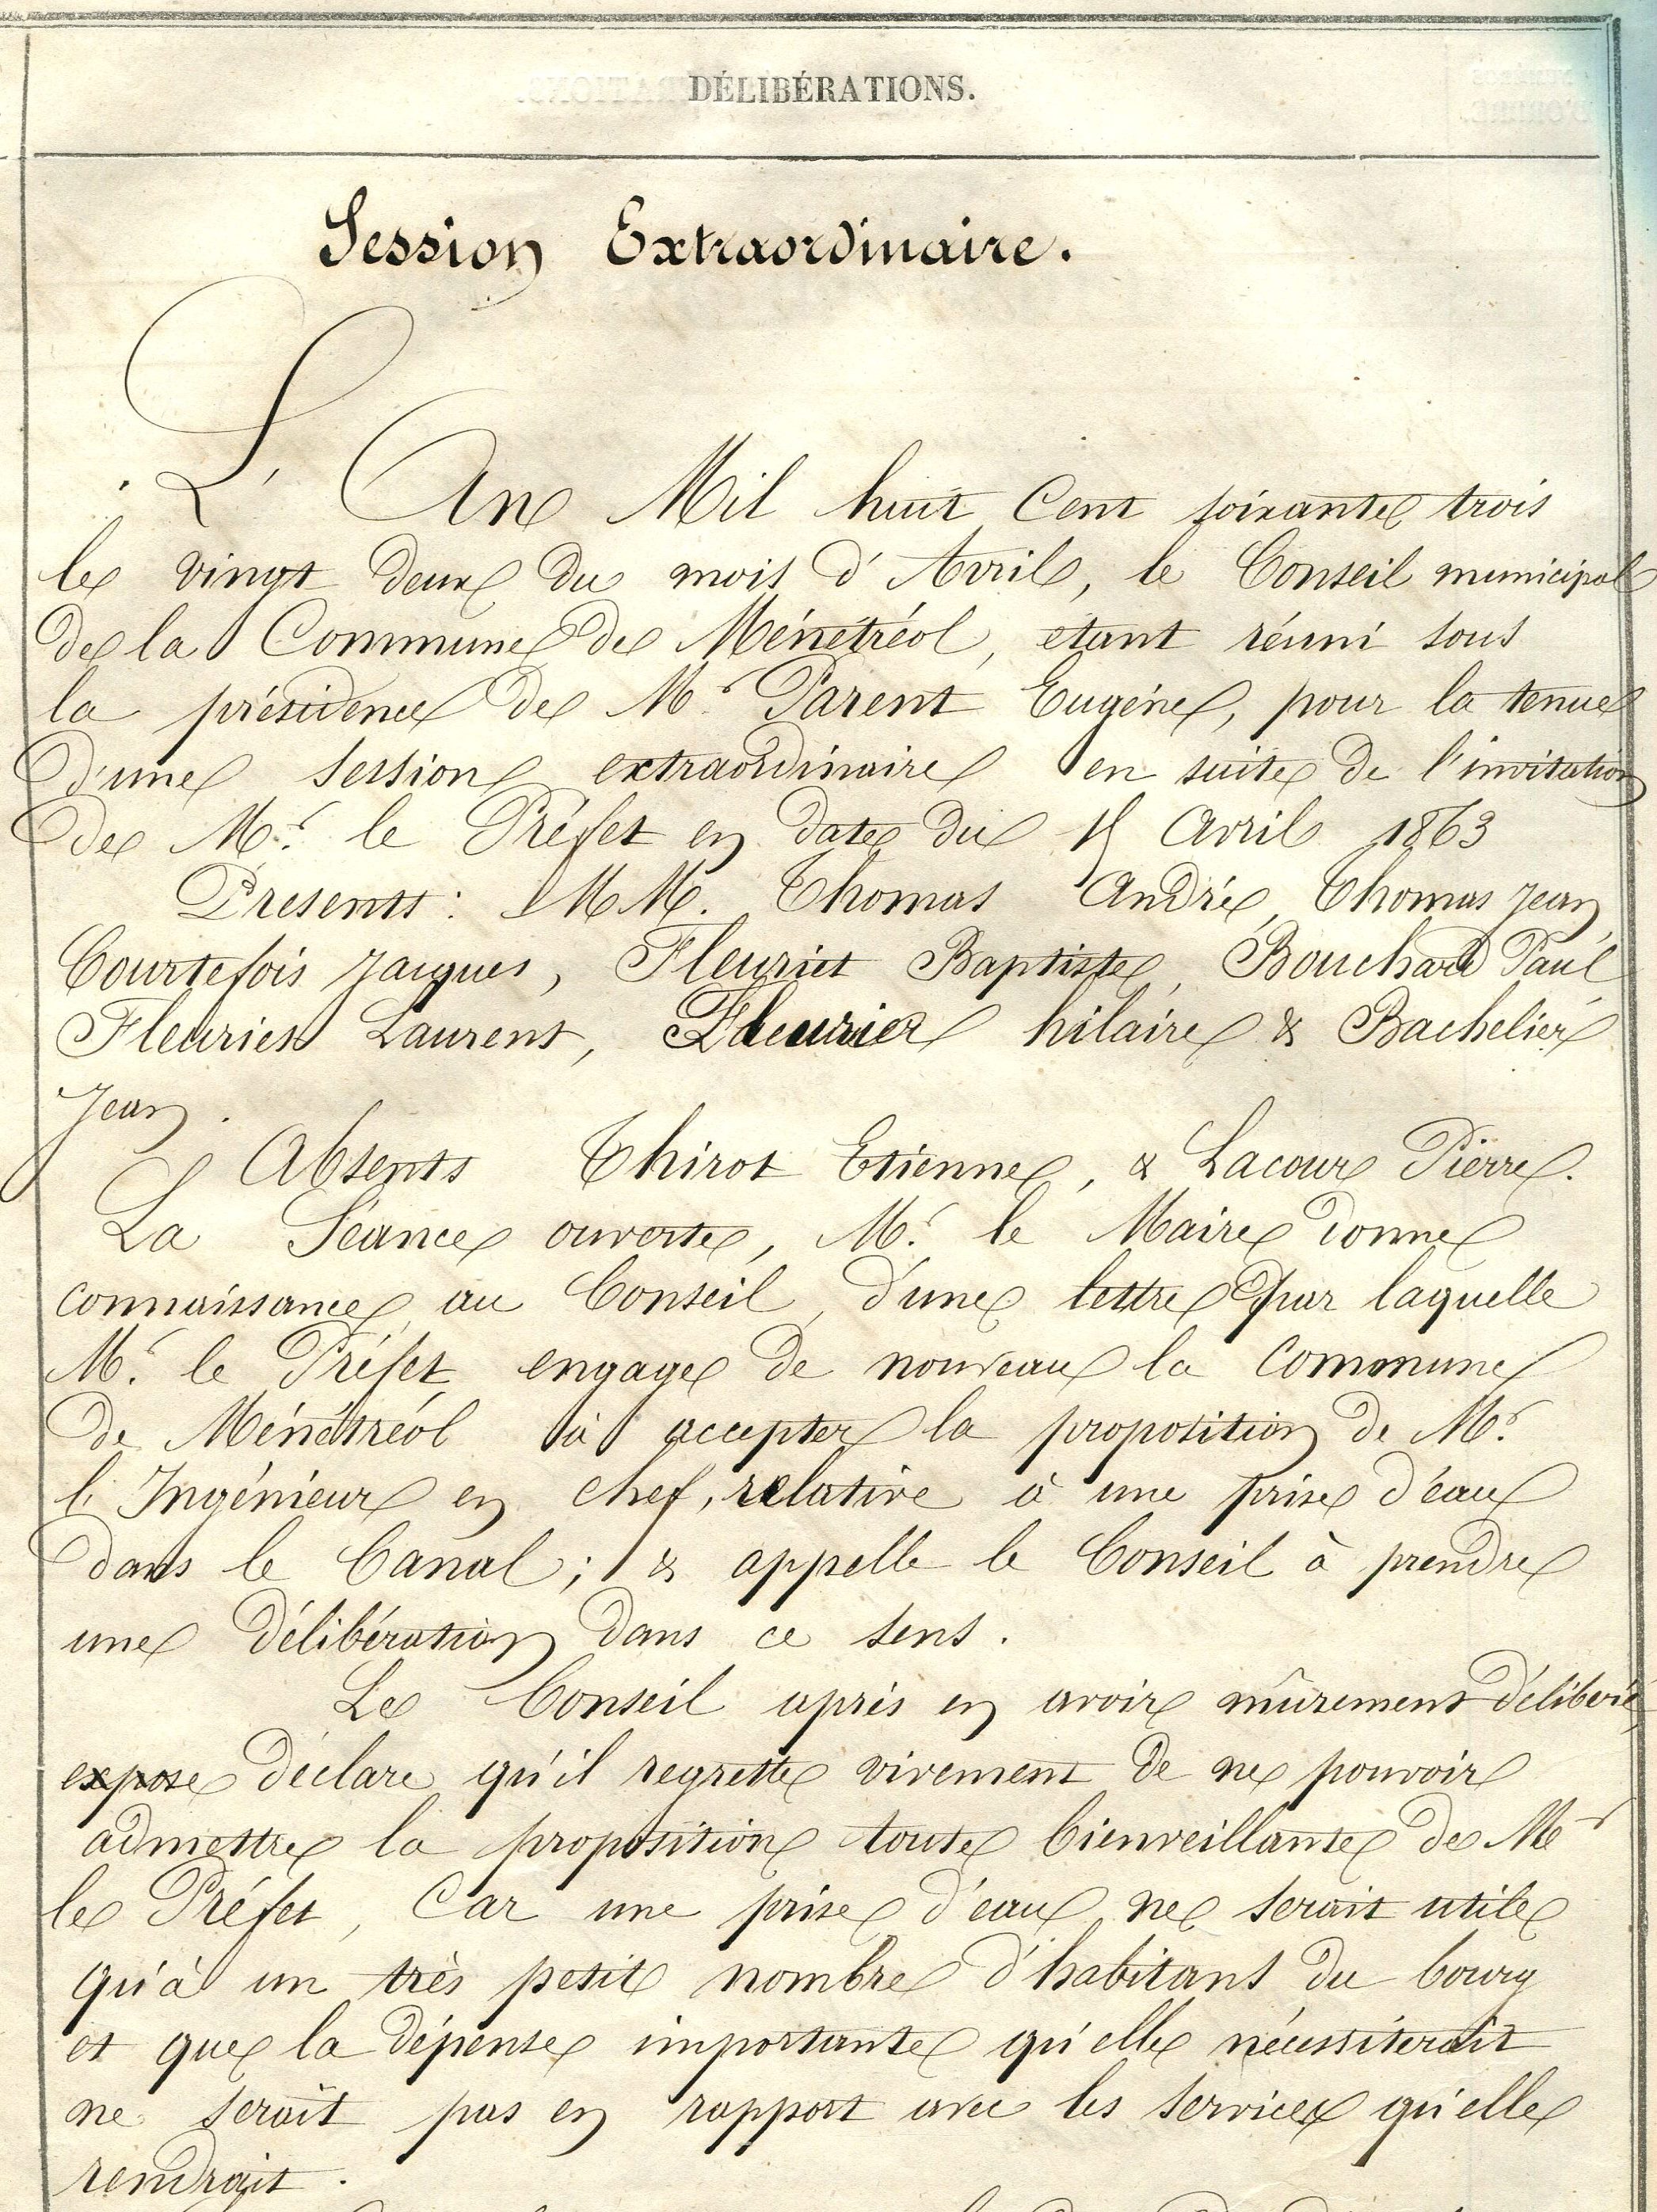 DÉLIBÉRATIONS.
Session Extraordinaire.
L'An Mil huit Cent soixante trois
le vingt deux du mois d'Avril, le Conseil municipal
de la Commune de Ménétréol, etant réuni sous
la présidence de Mr Parent Eugéne, pour la tenue
d'une session extraordinaire en suite de l'invitation
de Mr. le Préfet en date du Avril 1863
Presents: MM. Thomas André, Thomas Jean,
Courtefois Jacques, Fleuriet Baptiste, Bouchard Paul,
Fleuriet Laurent, Fleurier hilaire & Bachelier
Jean.
Absents Thirot Etienne, & Lacour Pierre.
La Séance ouverte, Mr. le Maire donne
connaissance au Conseil, d'une lettre par laquelle
Mr. le Préfet engage de nouveau la Commune
de Ménétréol à accepter la proposition de Mr.
l'Ingénieur en chef, relative à une prise d'eau
dans le Canal; & appelle le Conseil à prendre
une délibération dans ce sens.
Le Conseil aprés en avoir mûrement déliberé,
expose déclare qu'il regrette vivement de ne pouvoir
admettre la proposition toute bienveillante de Mr
le Préfet, Car une prise d'eau ne serait utile
qu'à un très petit nombre d'habitans du bourg
et que la dépense importante qu'elle nécessiterait
ne serait pas en rapport avec les services qu'elle
rendrait.